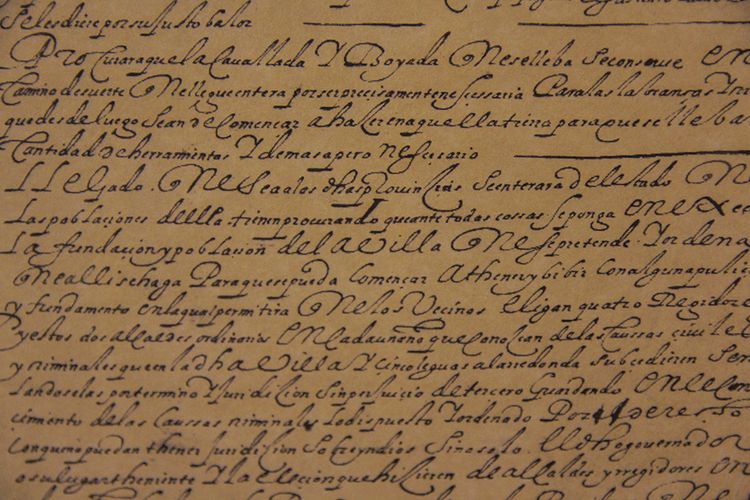 se les dice por su justo balor
Procuiara que la Cavallada Y Boyada que se lleba se conserve en
Camino de suerte que llegue entera por ser precisamente nescessaria Para las labransas Y
que desde luego sean de Començar a haser en aquella tierra para que se lleba
Cantidad de herramientas Y demas apero nescesario
LLegado que sea a los dhas provincias se enterara del estado
Las poblaciones de ella tienen procurando que ante todas cossas se ponga en exe
La fundacion y poblacion de la Villa que se pretende Y ordena
que alli se haga Para que se pueda Començar A thener y bibir con alguna puli
y fundamento en la qual permitira que los Vecinos elijan quatro Regidore
y estos dos alcaldes ordinarios en cada un año que Conoscan de las Caussas civile
y criminales que en la dha Villa Y cinco leguas a la redonda subcedieren
dandoselas por termino Y Juridicion sin perjuicio de tercero Guardando en el Con
cimiento de las Caussas criminales lo dispuesto Y ordenado Por derecho
con que no puedan thener Juridicion sobre yndios sino solo el dho governador
o su lugar theniente Y la Elecion que hisieren de alcaldes y rregidores en